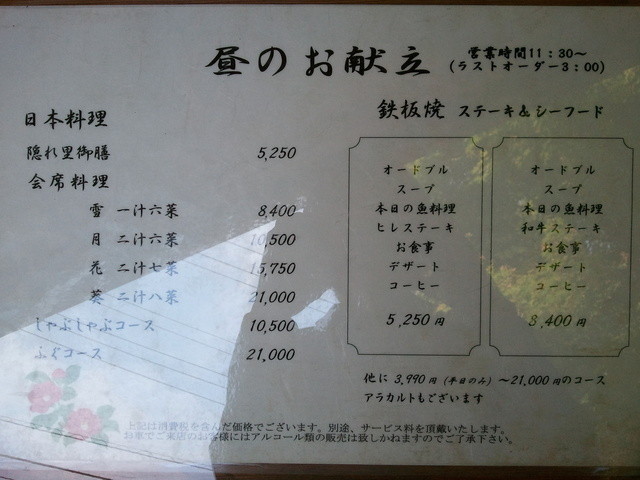 昼のお献立
営業時間11：30～
(ラストオーダー3：00)
日本料理
隠れ里御膳 5,250
会席料理
雪 一汁六菜 8,400
月 二汁六菜 10,500
花 二汁七菜 15,750
葵 二汁八菜 21,000
しゃぶしゃぶコース 10,500
ふぐコース 21,000
鉄板焼 ステーキ&シーフード
オードブル
スープ
本日の魚料理
ヒレステーキ
お食事
デザート
コーヒー
5,250円
オードブル
スープ
本日の魚料理
和牛ステーキ
お食事
デザート
コーヒー
8,400円
他に 3,990円 (平日のみ) ～21,000円のコース
アラカルトもございます
上記は消費税を含んだ価格でございます。別途、サービス料を頂戴いたします。
お車でご来店のお客様にはアルコール類の販売は致しかねますのでご了承下さい。